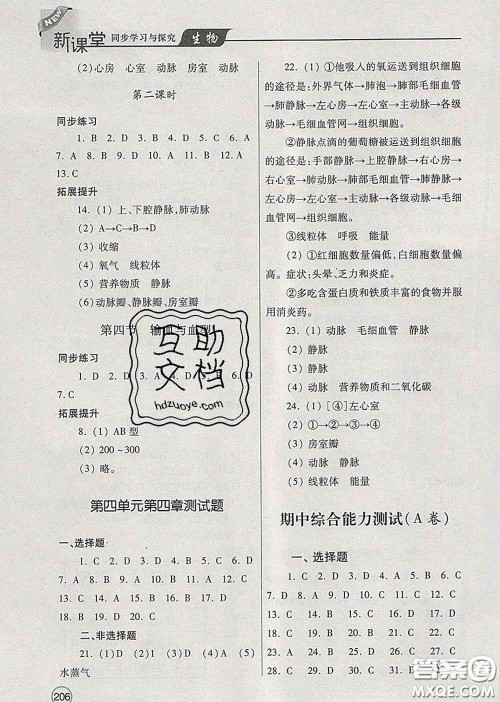 NEW
新课堂 同步学习与探究 生物
(2)心房 心室 动脉 房室 动脉
第二课时
同步练习
1. B 2. D 3. C 4. B 5. C 6. D
7. A 8. A 9. C 10. D 11. B 12. A
13. B
拓展提升
14. (1)上、下腔静脉,肺动脉
(2)A→C→B→D
(3)收缩
(4)氧气 线粒体
(5)营养物质 静脉
(6)动脉瓣、静脉瓣、房室瓣
第四节 输血与血型
同步练习
1. D 2. D 3. A
7. C
拓展提升
8. (1)AB 型
(2)200~300
(3)略
第四单元第四章测试题
一、选择题
1. C 2. C 3. B 4. D 5. D 6. C
7. A 8. B 9. D 10. D 11. A
12. D 13. A 14. D 15. D 16. A 17. D
18. B 19. D 20. D
二、非选择题
21. (1)D (2)A (3)C (4)A (5)
水蒸气
206
22. (1)①他吸入的氧运送到组织细胞
的途径是:外界气体→肺泡→肺部毛细血管
→肺静脉→左心房→左心室→主动脉→各级
动脉→毛细血管网→组织细胞。
②静脉点滴的葡萄糖被运送到组织细
胞的途径是:手部静脉→上腔静脉→右心房→
右心室→肺动脉→肺部毛细血管→肺静脉→
左心房→左心室→主动脉→各级动脉→毛细
血管网→组织细胞。
③线粒体 呼吸 能量
(2)①红细胞数量偏低,白细胞数量偏
高。症状:头晕、乏力和炎症。
②多吃含蛋白质和铁质丰富的食物并服
用消炎药。
23. (1)动脉 毛细血管 静脉
(2)静脉
(3)单
(4)动脉 营养物质和二氧化碳
24. (1)[④]左心室
(2)①→②→③→④
(3)房室瓣
(4)动脉 静脉
(5)能量
期中综合能力测试(A 卷)
一、选择题
1. C 2. D 3. D 4. A 5. B 6. C
7. D 8. D 9. A 10. C 11. D 12. C
13. C 14. C 15. D 16. A 17. C
18. C 19. D 20. A 21. B 22. C
23. D 24. D 25. D 26. A 27. C
28. C 29. D 30. C 31. D
互助
文档
hdzuoye.com
答案圈
MXQE.COM